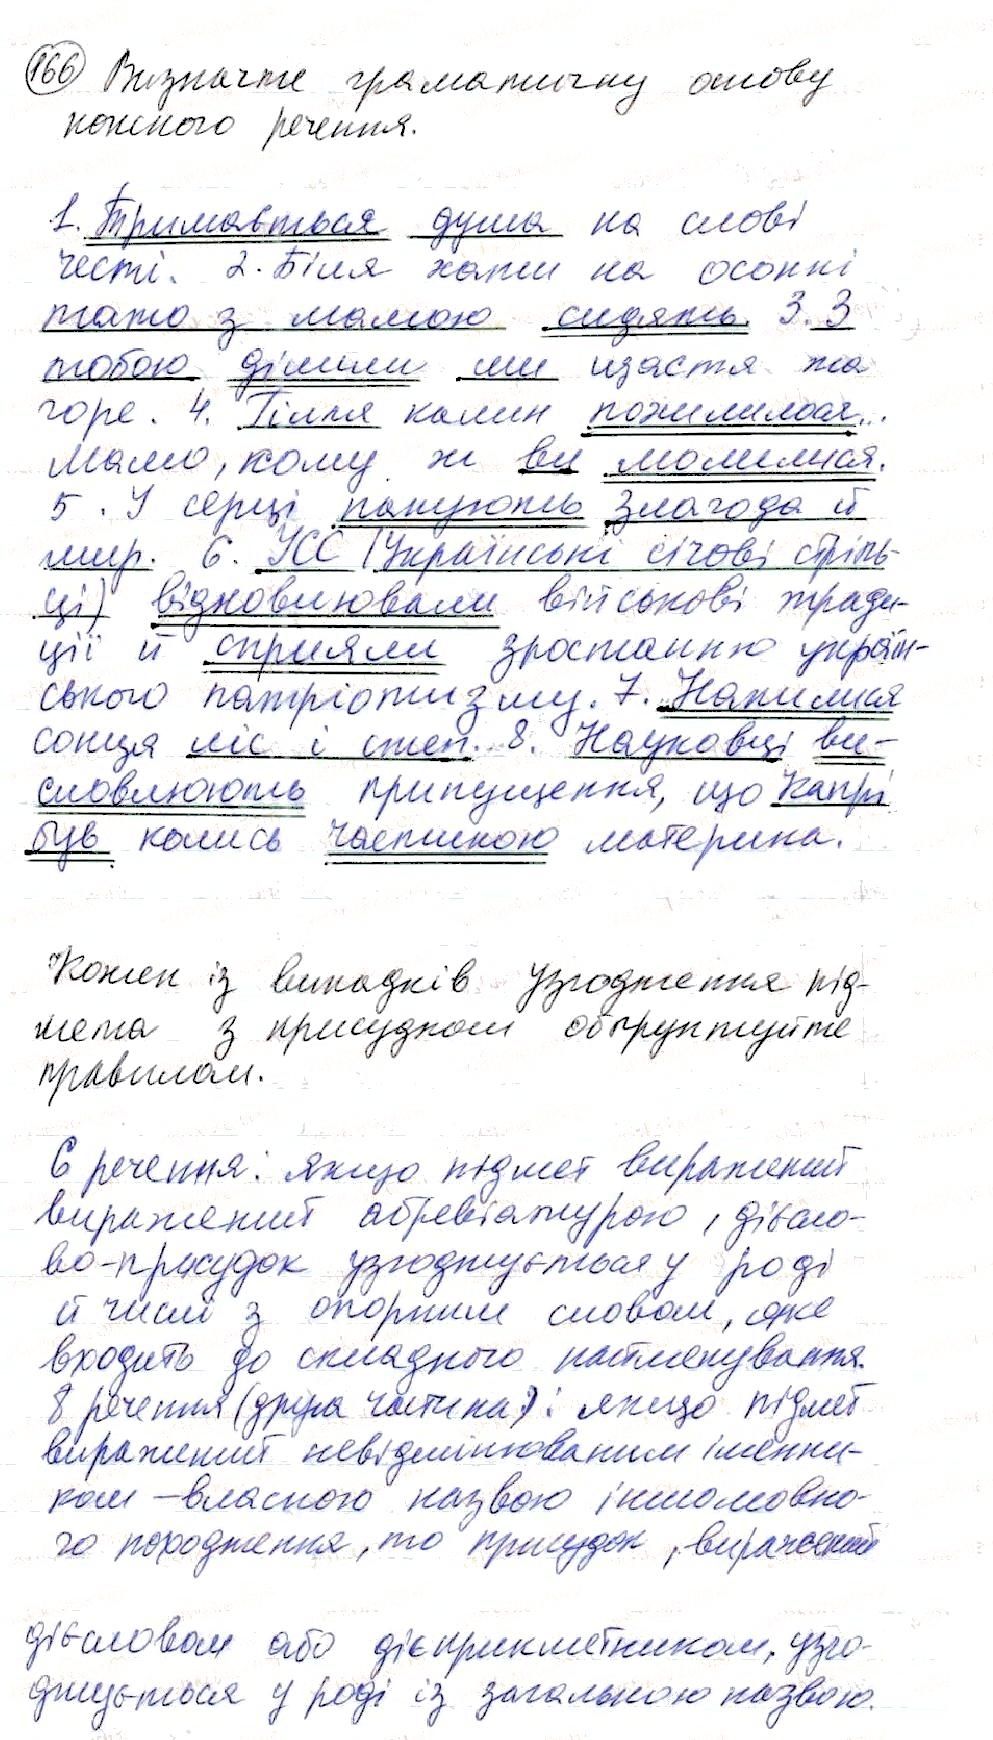 166 Визначте граматичну основу
кожного речення.
1. Тримається душа на слові
честі. 2. Біля хати на осонні
тато з мамою сидять. 3. З
тобою ділили ми щастя та
горе. 4. Гілля калин похилилося...
Мамо, кому ж ви молилися.
5. У серці панують злагода й
мир. 6. УСС (Українські січові стріль-
ці) відновлювали військові тради-
ції й сприяли зростанню україн-
ського патріотизму. 7. Напилися
сонця ліс і степ. 8. Науковці ви-
словлюють припущення, що Капрі
був колись частиною материка.
Кожен із випадків узгодження під-
мета з присудком обґрунтуйте
правилом.
6 речення: якщо підмет виражений
виражений абревіатурою, дієсло-
во-присудок узгоджується у роді
й числі з опорним словом, яке
входить до складного найменування.
8 речення (друга частина): якщо підмет
виражений невідмінюваним іменни-
ком - власною назвою іншомовно-
го походження, то присудок, виражений
дієсловом або дієприкметником, узго-
джується у роді із загальною назвою.